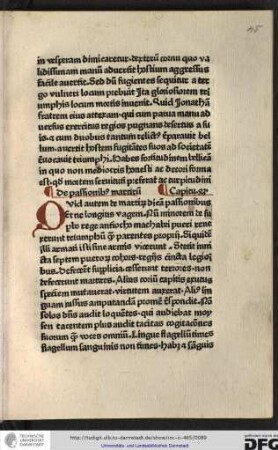 in vesperam dimicaretur. dexterū cornu quo va
lidissimam manū aduerāt hostium aggressus
facile auertit. Sed dū fugientes sequitur a ter
go vulneri locum prebuit Ita gloriosiorem tri
umphis locum mortis inuenit Quid Jonathā
fratrem eius attexam. qui cum parua manu ad
uersus exercitus regios pugnans desertus a su
is. a cum duobus tantum relictꝰ reparauit bel
lum. auertit hostem fugitātes suos ad societatē
reuocauit triumphi. Habes fortitudinem bellicā
in qua non mediocris honesti ac decori forma
est. qd mortem seruituti preferat ac turpitudini
De passionibꝰ martirū Capitu.
Quid autem de martirū dicā passionibus
Et ne longius vagem. Nū minorem de su
perbo rege antiocho machabei pueri reue
xerunt triumphū ꝙ parentes proprij. Siquidē
illi armati isti sine armis vicerunt. Stetit inui
cta septem pueroꝝ cohors. regijs cincta legiōi
bus. Defecerūt supplicia. cesserunt tortores. non
defecerunt martires. Alius coriū capitis exutus
speciem mutauerat. virtutem auxerat. Aliꝰ lin
guam iussus amputandam promere respondit. Nō
solos dn̄s audit loquētes. qui audiebat moy
sen tacentem plus audit tacitas cogitacōnes
suorum ꝙ voces omniū. Lingue flagellū times
flagellum sanguinis non times. Habet et sāguis
TECHNISCHE
UNIVERSITÄT
DARMSTADT
http://tudigit.ulb.tu-darmstadt.de/show/inc-ii-465/0089
Universitäts- und Landesbibliothek Darmstadt
gefördert durch die
DFG